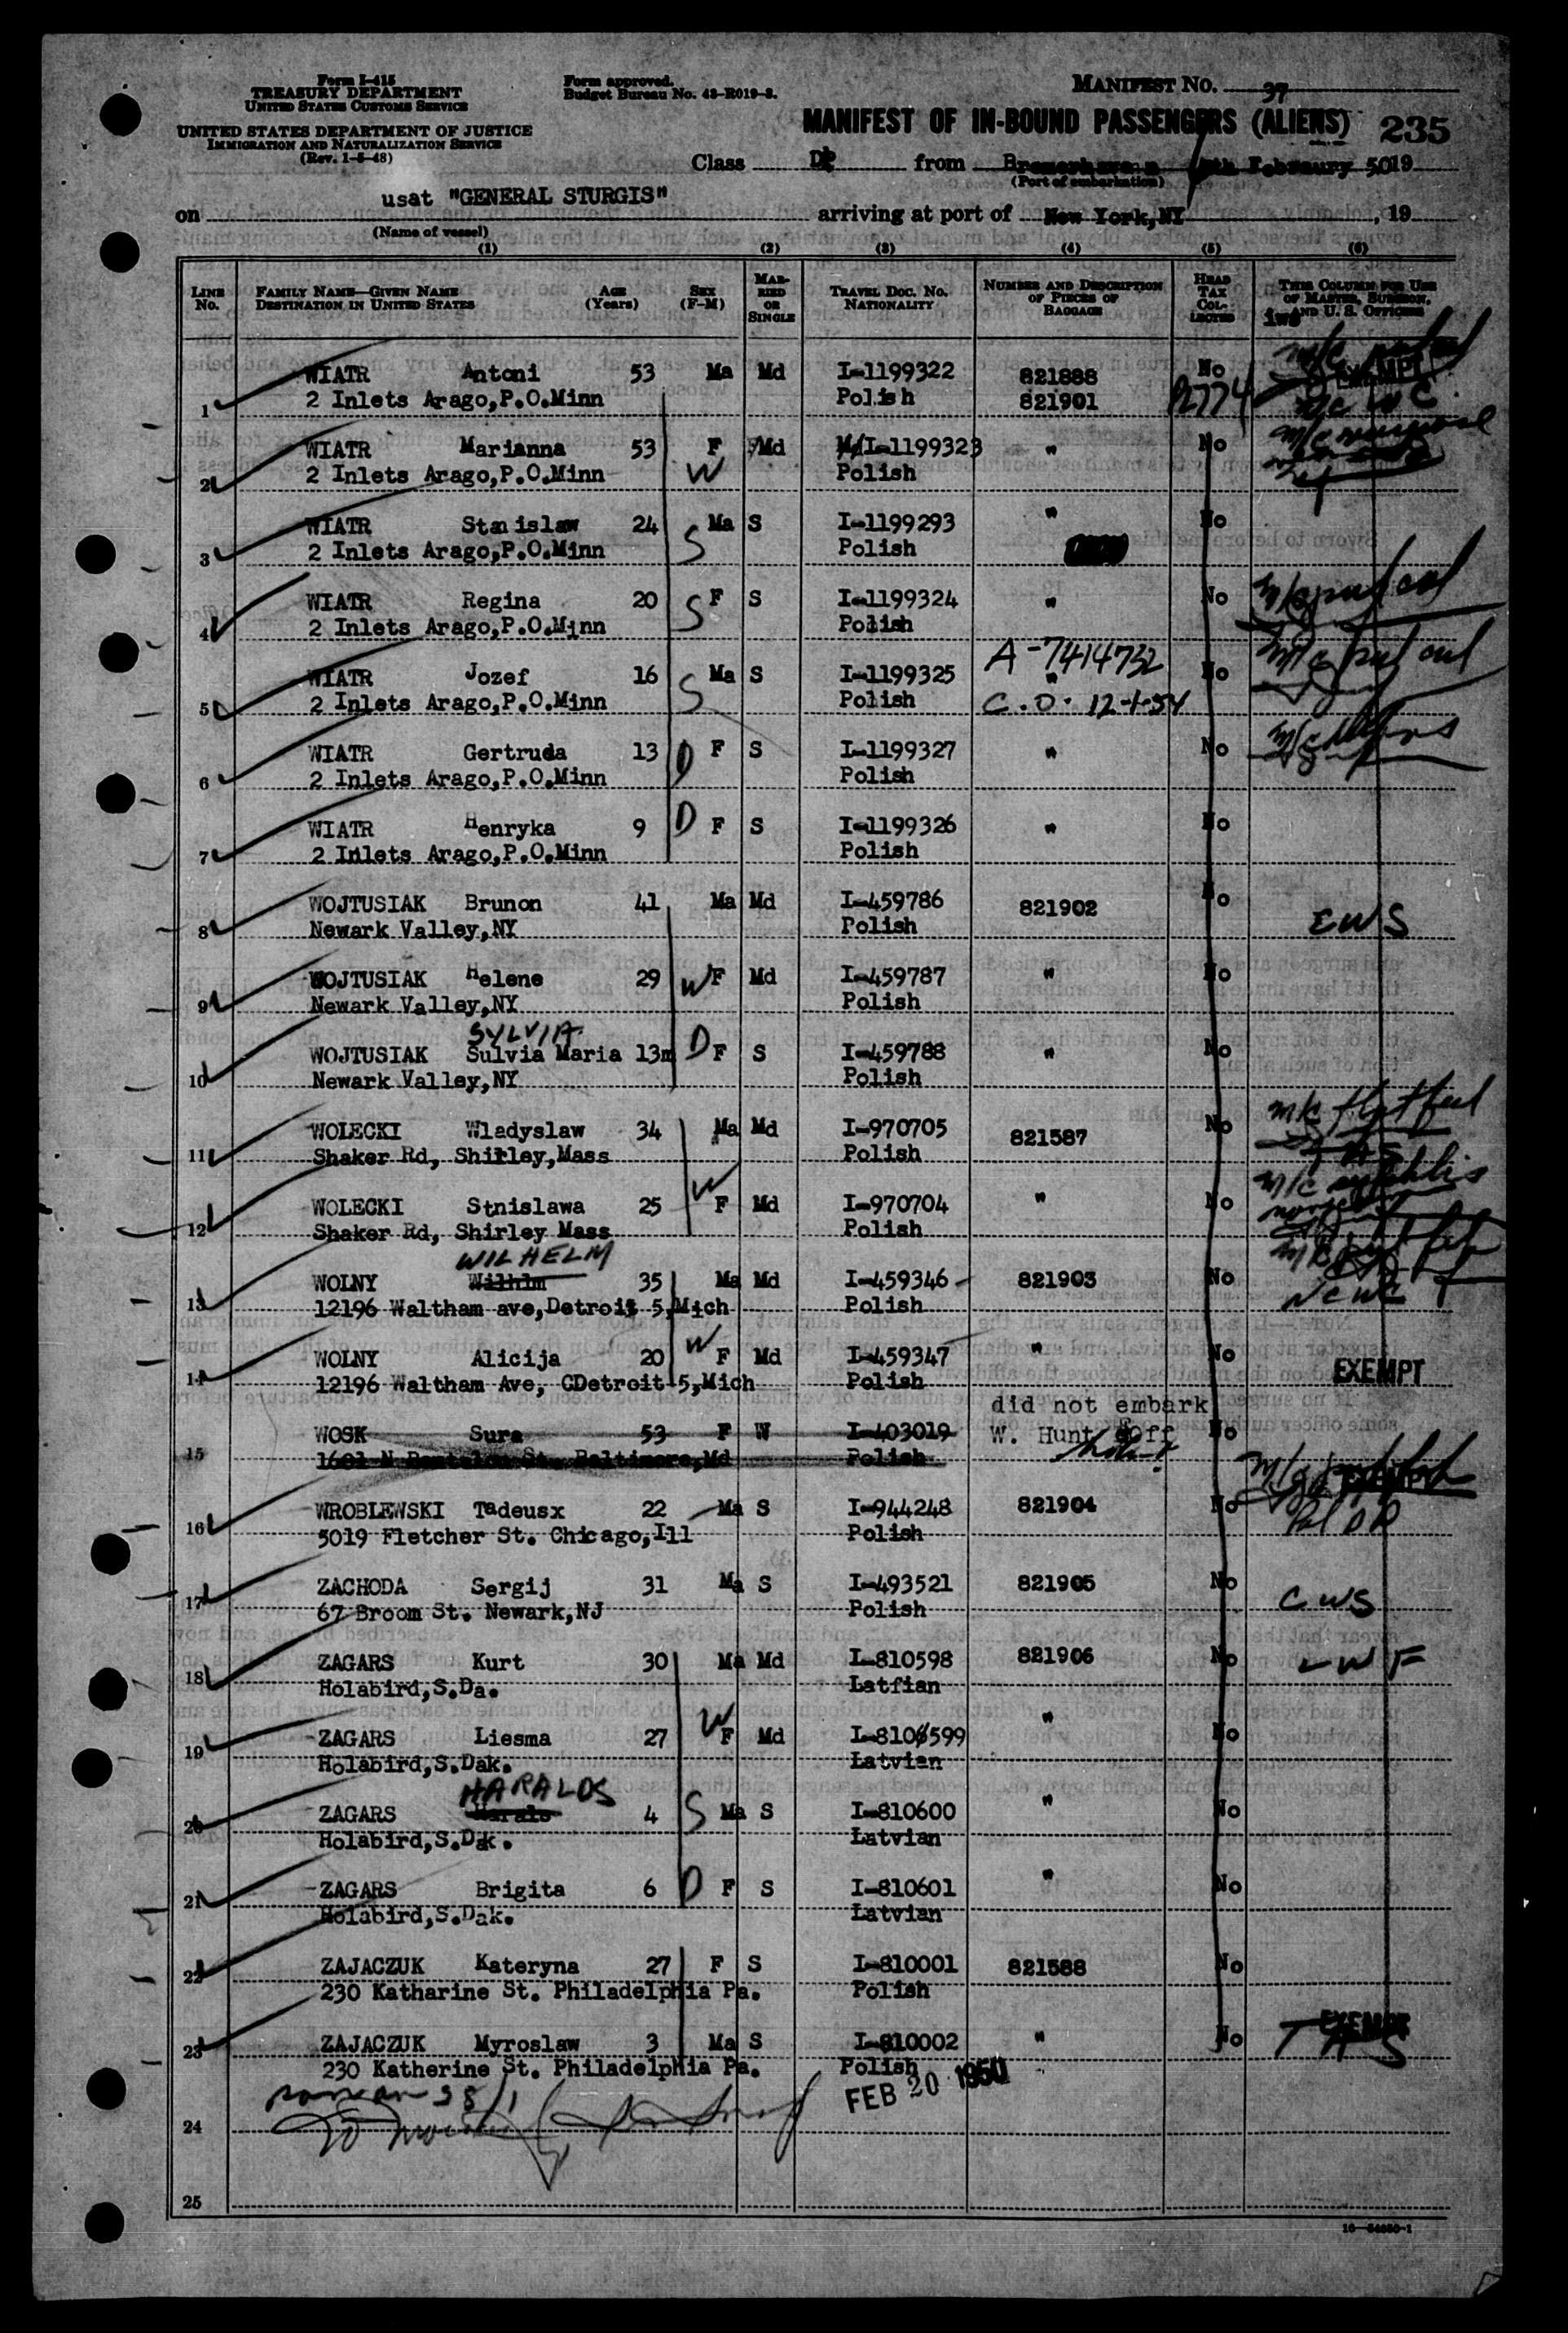 Form I-415
TREASURY DEPARTMENT
UNITED STATES CUSTOMS SERVICE
UNITED STATES DEPARTMENT OF JUSTICE
IMMIGRATION AND NATURALIZATION SERVICE
(Rev. 1-5-48)
Form approved.
Budget Bureau No. 43-R019-3.
MANIFEST NO. 37
MANIFEST OF IN-BOUND PASSENGERS (ALIENS) 235
Class DP from February 5019
(Port of embarkation)
on usat "GENERAL STURGIS" arriving at port of New York,NY, 19
(Name of vessel)
(1) (2) (3) (4) (5) (6)
LINE No. FAMILY NAME—GIVEN NAME DESTINATION IN UNITED STATES AGE (Years) SEX (F-M) MARRIED OR SINGLE TRAVEL DOC. NO. NATIONALITY NUMBER AND DESCRIPTION OF PIECES OF BAGGAGE HEAD TAX COLLECTED THIS COLUMN FOR USE OF MASTER, SURGEON, AND U. S. OFFICERS
WIATR Antoni 53 Ma Md I-1199322 821888 No EXEMPT
1 2 Inlets Arago,P.O.Minn Polish 821901
WIATR Marianna 53 F Md I-1199323 " No
2 2 Inlets Arago,P.O.Minn W Polish
WIATR Stanislaw 24 Ma S I-1199293 " No
3 2 Inlets Arago,P.O.Minn S Polish
WIATR Regina 20 F S I-1199324 " No
4 2 Inlets Arago,P.O.Minn S Polish
A-7414732
WIATR Jozef 16 Ma S I-1199325 " No
5 2 Inlets Arago,P.O.Minn S Polish C.O. 12-1-54
WIATR Gertruda 13 D F S I-1199327 " No
6 2 Inlets Arago,P.O.Minn Polish
WIATR Henryka 9 D F S I-1199326 " No
7 2 Inlets Arago,P.O.Minn Polish
WOJTUSIAK Brunon 41 Ma Md I-459786 821902 No
8 Newark Valley,NY Polish CWS
WOJTUSIAK Helene 29 W F Md I-459787 " No
9 Newark Valley,NY Polish
SYLVIA
WOJTUSIAK Sulvia Maria 13m D F S I-459788 " No
10 Newark Valley,NY Polish
WOLECKI Wladyslaw 34 Ma Md I-970705 821587 No
11 Shaker Rd, Shirley,Mass Polish
WOLECKI Stnislawa 25 W F Md I-970704 " No
12 Shaker Rd, Shirley Mass Polish
WILHELM
WOLNY Wilhlm 35 Ma Md I-459346 821903 No
13 12196 Waltham ave,Detroit 5,Mich Polish NCWC
WOLNY Alicija 20 W F Md I-459347 " No EXEMPT
14 12196 Waltham Ave, CDetroit 5,Mich Polish
did not embark
WOSK Sura 53 F W I-403019 W. Hunt Off No
15 St., Baltimore,Md Polish
WROBLEWSKI Tadeusx 22 Ma S I-944248 821904 No
16 5019 Fletcher St. Chicago,Ill Polish
ZACHODA Sergij 31 Ma S I-493521 821905 No
17 67 Broom St. Newark,NJ Polish CWS
ZAGARS Kurt 30 Ma Md I-810598 821906 No LWF
18 Holabird,S.Da. Latfian
ZAGARS Liesma 27 W F Md I-810599 " No
19 Holabird,S.Dak. Latvian
HARALDS
ZAGARS 4 S Ma S I-810600 " No
20 Holabird,S.Dak. Latvian
ZAGARS Brigita 6 D F S I-810601 " No
21 Holabird,S.Dak. Latvian
ZAJACZUK Kateryna 27 F S I-810001 821588 No
22 230 Katharine St. Philadelphia Pa. Polish
ZAJACZUK Myroslaw 3 Ma S I-810002 " No EXEMPT
23 230 Katherine St. Philadelphia Pa. Polish
FEB 20 1950
24
25